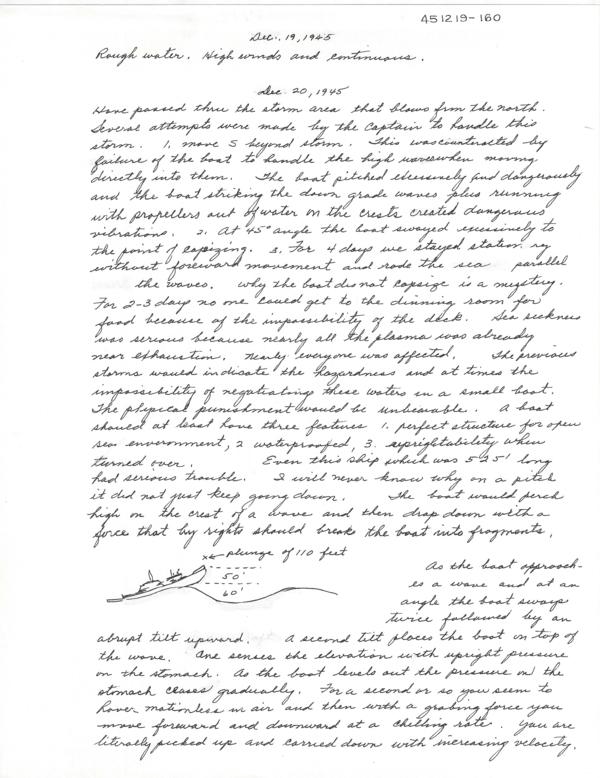 451219-160
Dec. 19, 1945
Rough water. High winds and continuous.
Dec. 20, 1945
Have passed thru the storm area that blows frm the north.
Several attempts were made by the Captain to handle this
storm. 1. move S beyond storm. This was counteracted by
failure of the boat to handle the high waves when moving
directly into them. The boat pitched excessively and dangerously
and the boat striking the down grade waves plus running
with propellers out of water on the crests created dangerous
vibrations. 2. At 45° angle the boat swayed excessively to
the point of capizing. 3. For 4 days we stayed station ry
without foreward movement and rode the sea parallel
the waves. Why the boat did not capsize is a mystery.
For 2-3 days no one could get to the dinning room for
food because of the impossibility of the deck. Sea sickness
was serious because nearly all the plasma was already
near exhaustion. Nearly everyone was affected. The previous
storms would indicate the hazardness and at times the
impossibility of negotiating these waters in a small boat.
The physical punishment would be unbearable. A boat
should at least have three features 1. perfect structure for open
sea environment, 2 waterproofed, 3. uprightability when
turned over. Even this ship which was 525' long
had serious trouble. I will never know why on a pitch
it did not just keep going down. The boat would perch
high on the crest of a wave and then drop down with a
force that by rights should break the boat into fragments.
x← plunge of 110 feet
50'
60'
As the boat approach-
es a wave and at an
angle the boat sways
twice followed by an
abrupt tilt upward. A second tilt places the boat on top of
the wave. One senses the elevation with upright pressure
on the stomach. As the boat levels out the pressure on the
stomach ceases gradually. For a second or so you seem to
hover motionless in air and then with a grabing force you
move foreward and downward at a chilling rate. You are
literally picked up and carried down with increasing velocity.